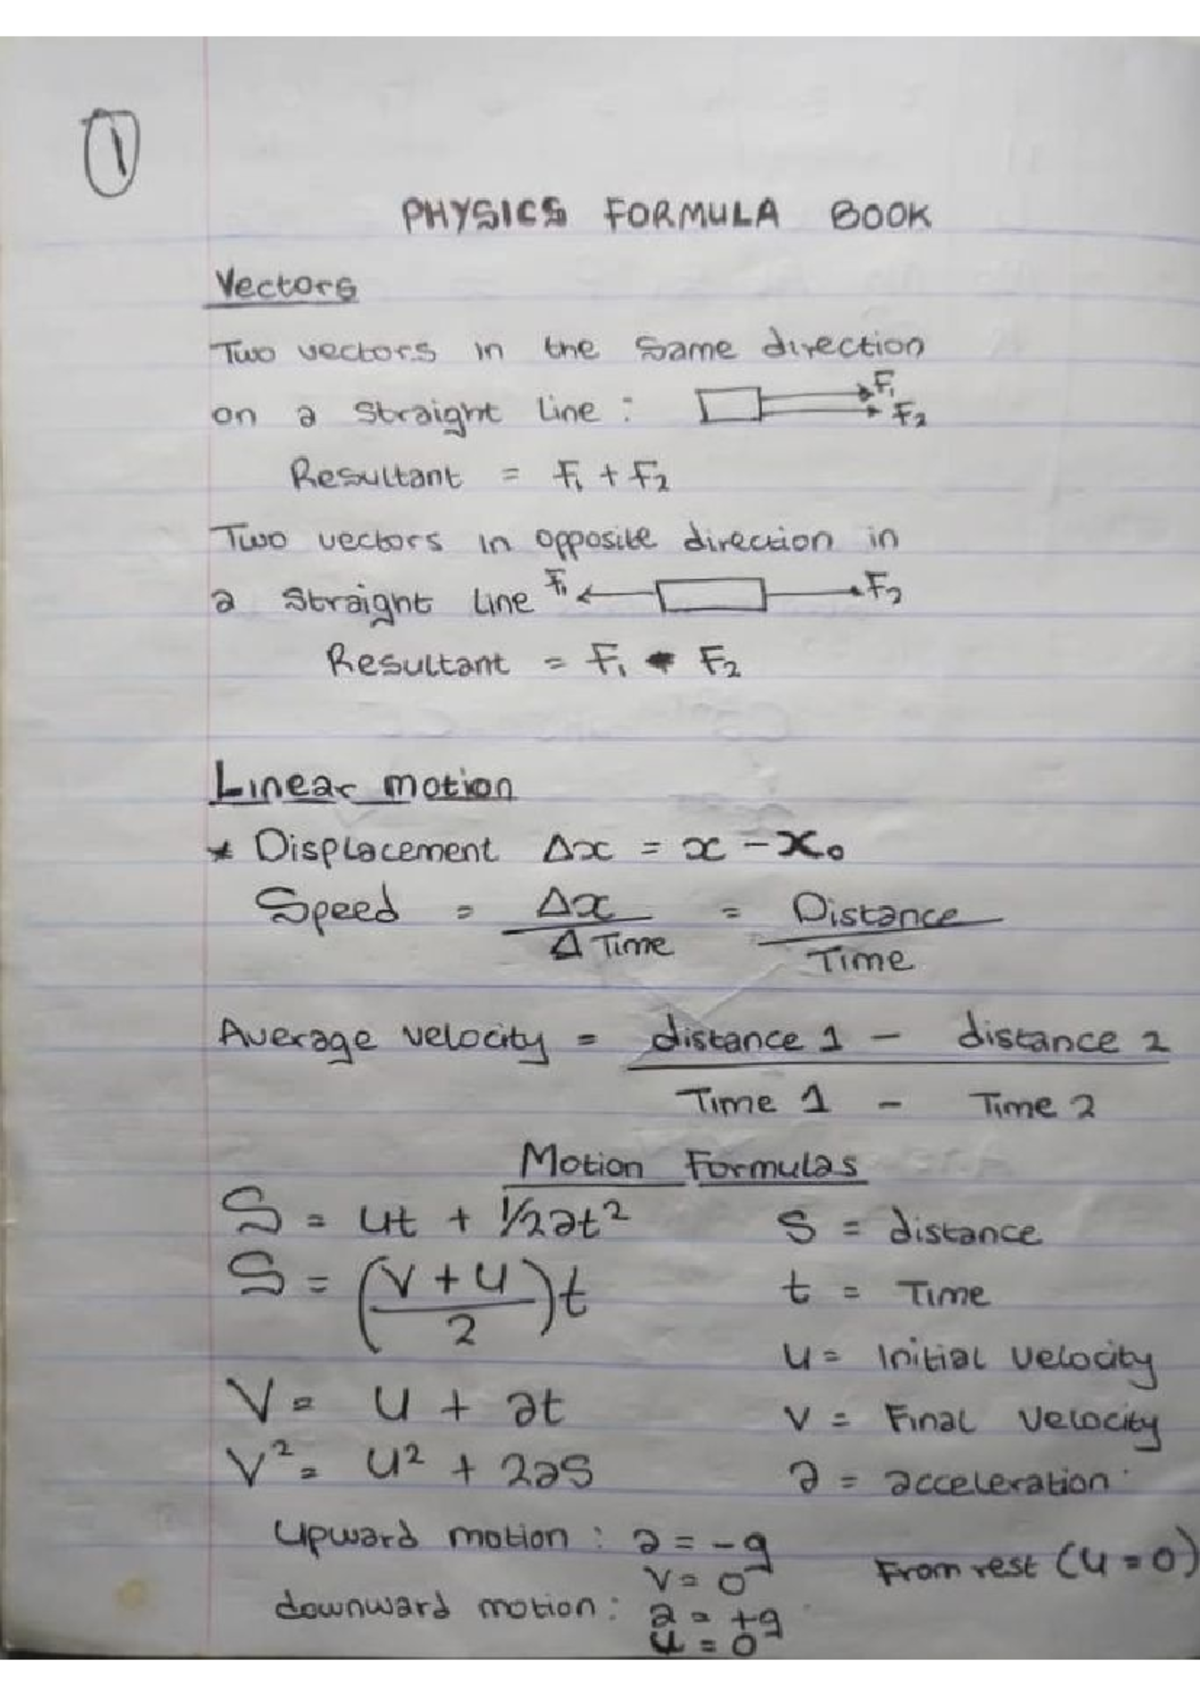 1
PHYSICS FORMULA BOOK
Vectors
Two vectors in the same direction
on a straight line : F₁ F₂
Resultant = F₁ + F₂
Two vectors in opposite direction in
a straight line F₁ F₂
Resultant = F₁ - F₂
Linear motion
* Displacement Δx = x - x₀
Speed = Δx / Δ Time = Distance / Time
Average velocity = distance 1 - distance 2
Time 1 - Time 2
Motion Formulas
S = ut + 1/2at² S = distance
S = (v + u / 2)t t = Time
u = Initial velocity
V = u + at v = Final velocity
V² = u² + 2as a = acceleration
Upward motion : a = -g
v = 0 From rest (u = 0)
downward motion : a = +g
u = 0